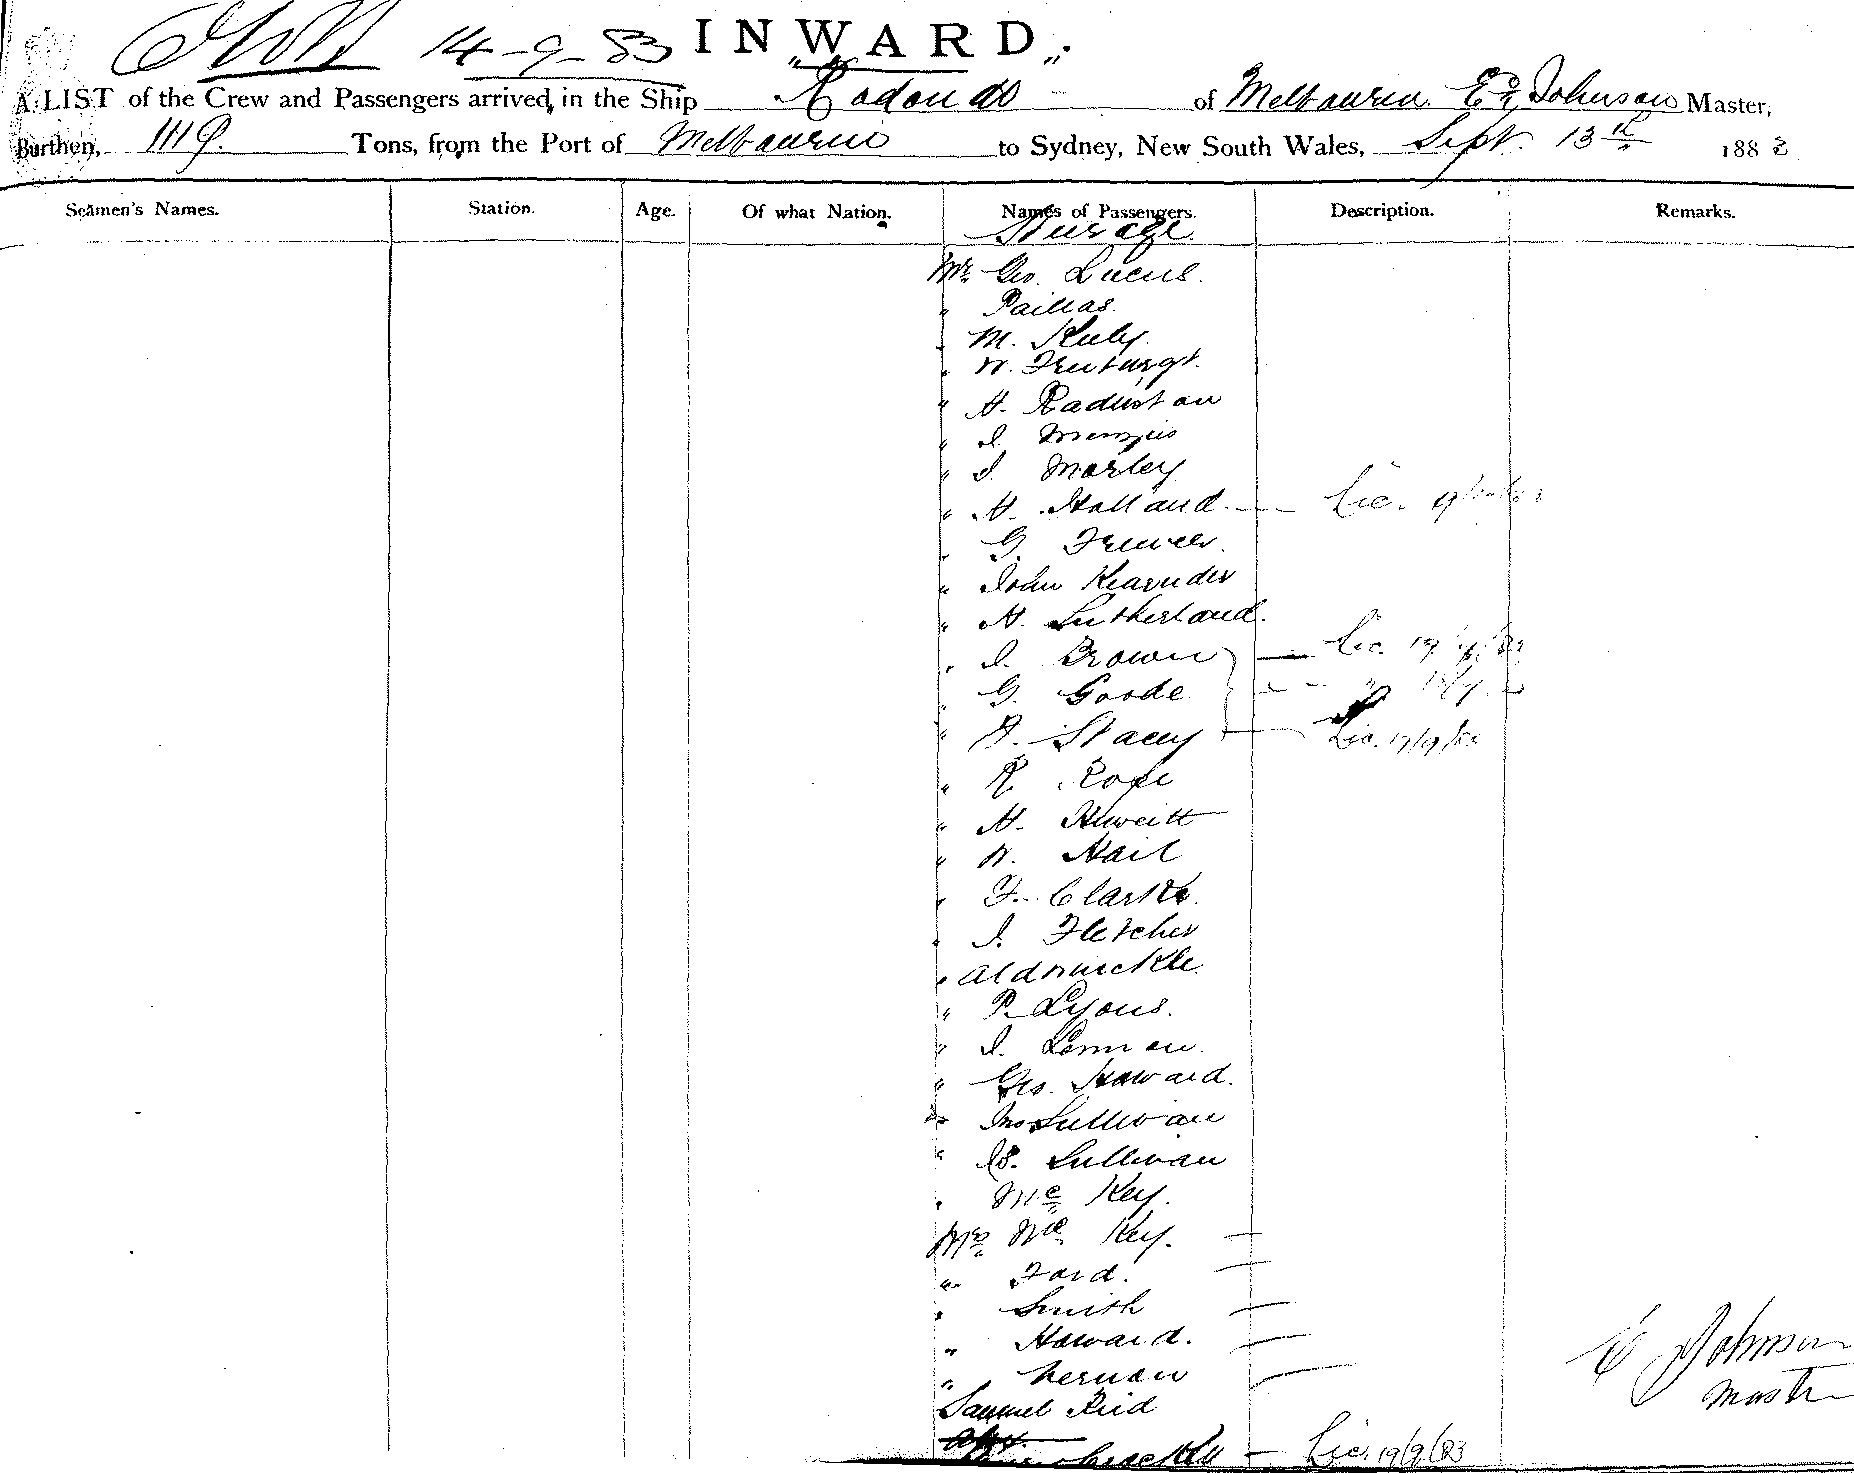 14-9-83 INWARD.
A LIST of the Crew and Passengers arrived, in the Ship Rodondo of Melbourne E. Johnson Master,
Burthen, 1119. Tons, from the Port of Melbourne to Sydney, New South Wales, Sept. 13th 1883
Seamen's Names. Station. Age. Of what Nation. Names of Passengers. Description. Remarks.
Steerage
Mr Geo. Lucus.
" Paillas.
" M. Kuly.
" W.
" H. Radustan
" J. Menzies
" J. Morley
" H. Holland. — Lic.
" G.
" John
" H. Sutherland.
" J. Brown — Lic. 19/9/83
" G. Goode — "
" H. Stacey — Lic. 19/9/83
" R. Rope
" H. Heweitt
" W. Hail
" F. Clarke.
" J. Fletcher
" Aldwinckle.
" P. Lyons.
" J. Lennon.
" Geo. Howard.
" Jno Sullivan
" Js. Sullivan
" Mc Key.
Mrs Mc Key. —
" Ford. —
" Smith —
" Howard. —
" Vernon —
Samuel Reid
— Lic. 19/9/83
E Johnson
Master